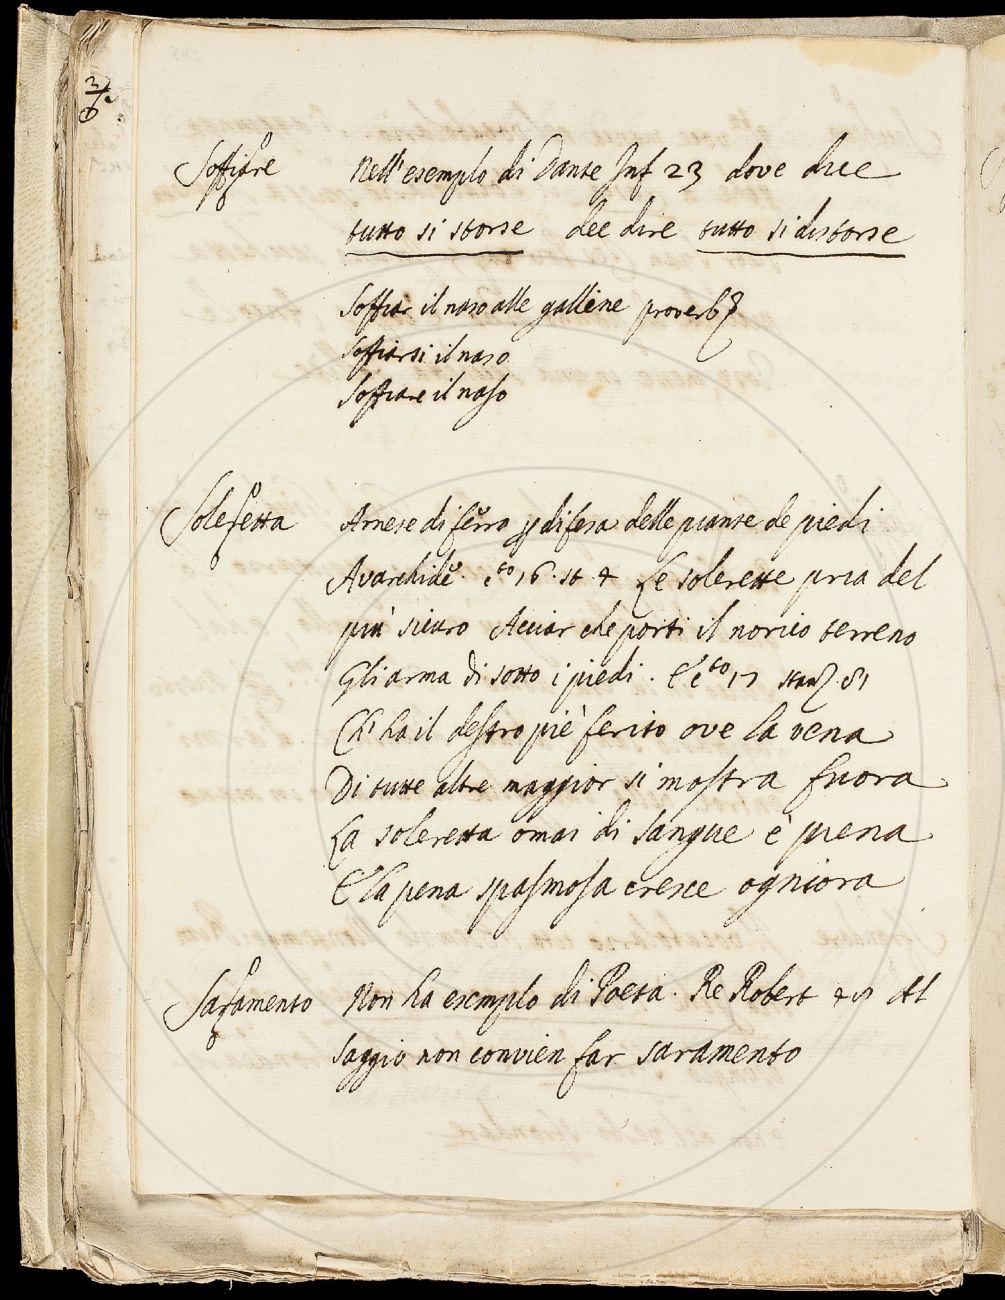 Soffiare Nell'esemplo di Dante Inf 23 dove dice
tutto si storse dee dire tutto si distorse
Soffiar il naso alle galline proverb
Soffiarsi il naso
Soffiare il naso
Soleretta Arnese di ferro p difesa delle piante de piedi
Avarchide. Cto 16. st 4 Le solerette pria del
piu sicuro Acciar che porti il norico terreno
Gli arma di sotto i piedi. E Cto 17 stanz. 81
Ch' ha il destro piè ferito ove la vena
Di tutte altre maggior si mostra fuora
La soleretta omai di sangue è piena
E la pena spasmosa cresce ogniora
Saramento Non ha esemplo di Poeta. Re Robert Al
saggio non convien far saramento